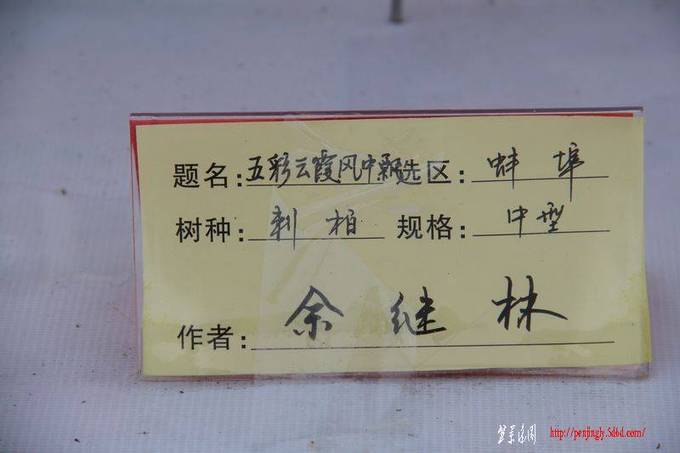 题名：五彩云霞风中飘 选区：蚌埠
树种：刺柏 规格：中型
作者：余继林
http://penjingly.5d6d.com/